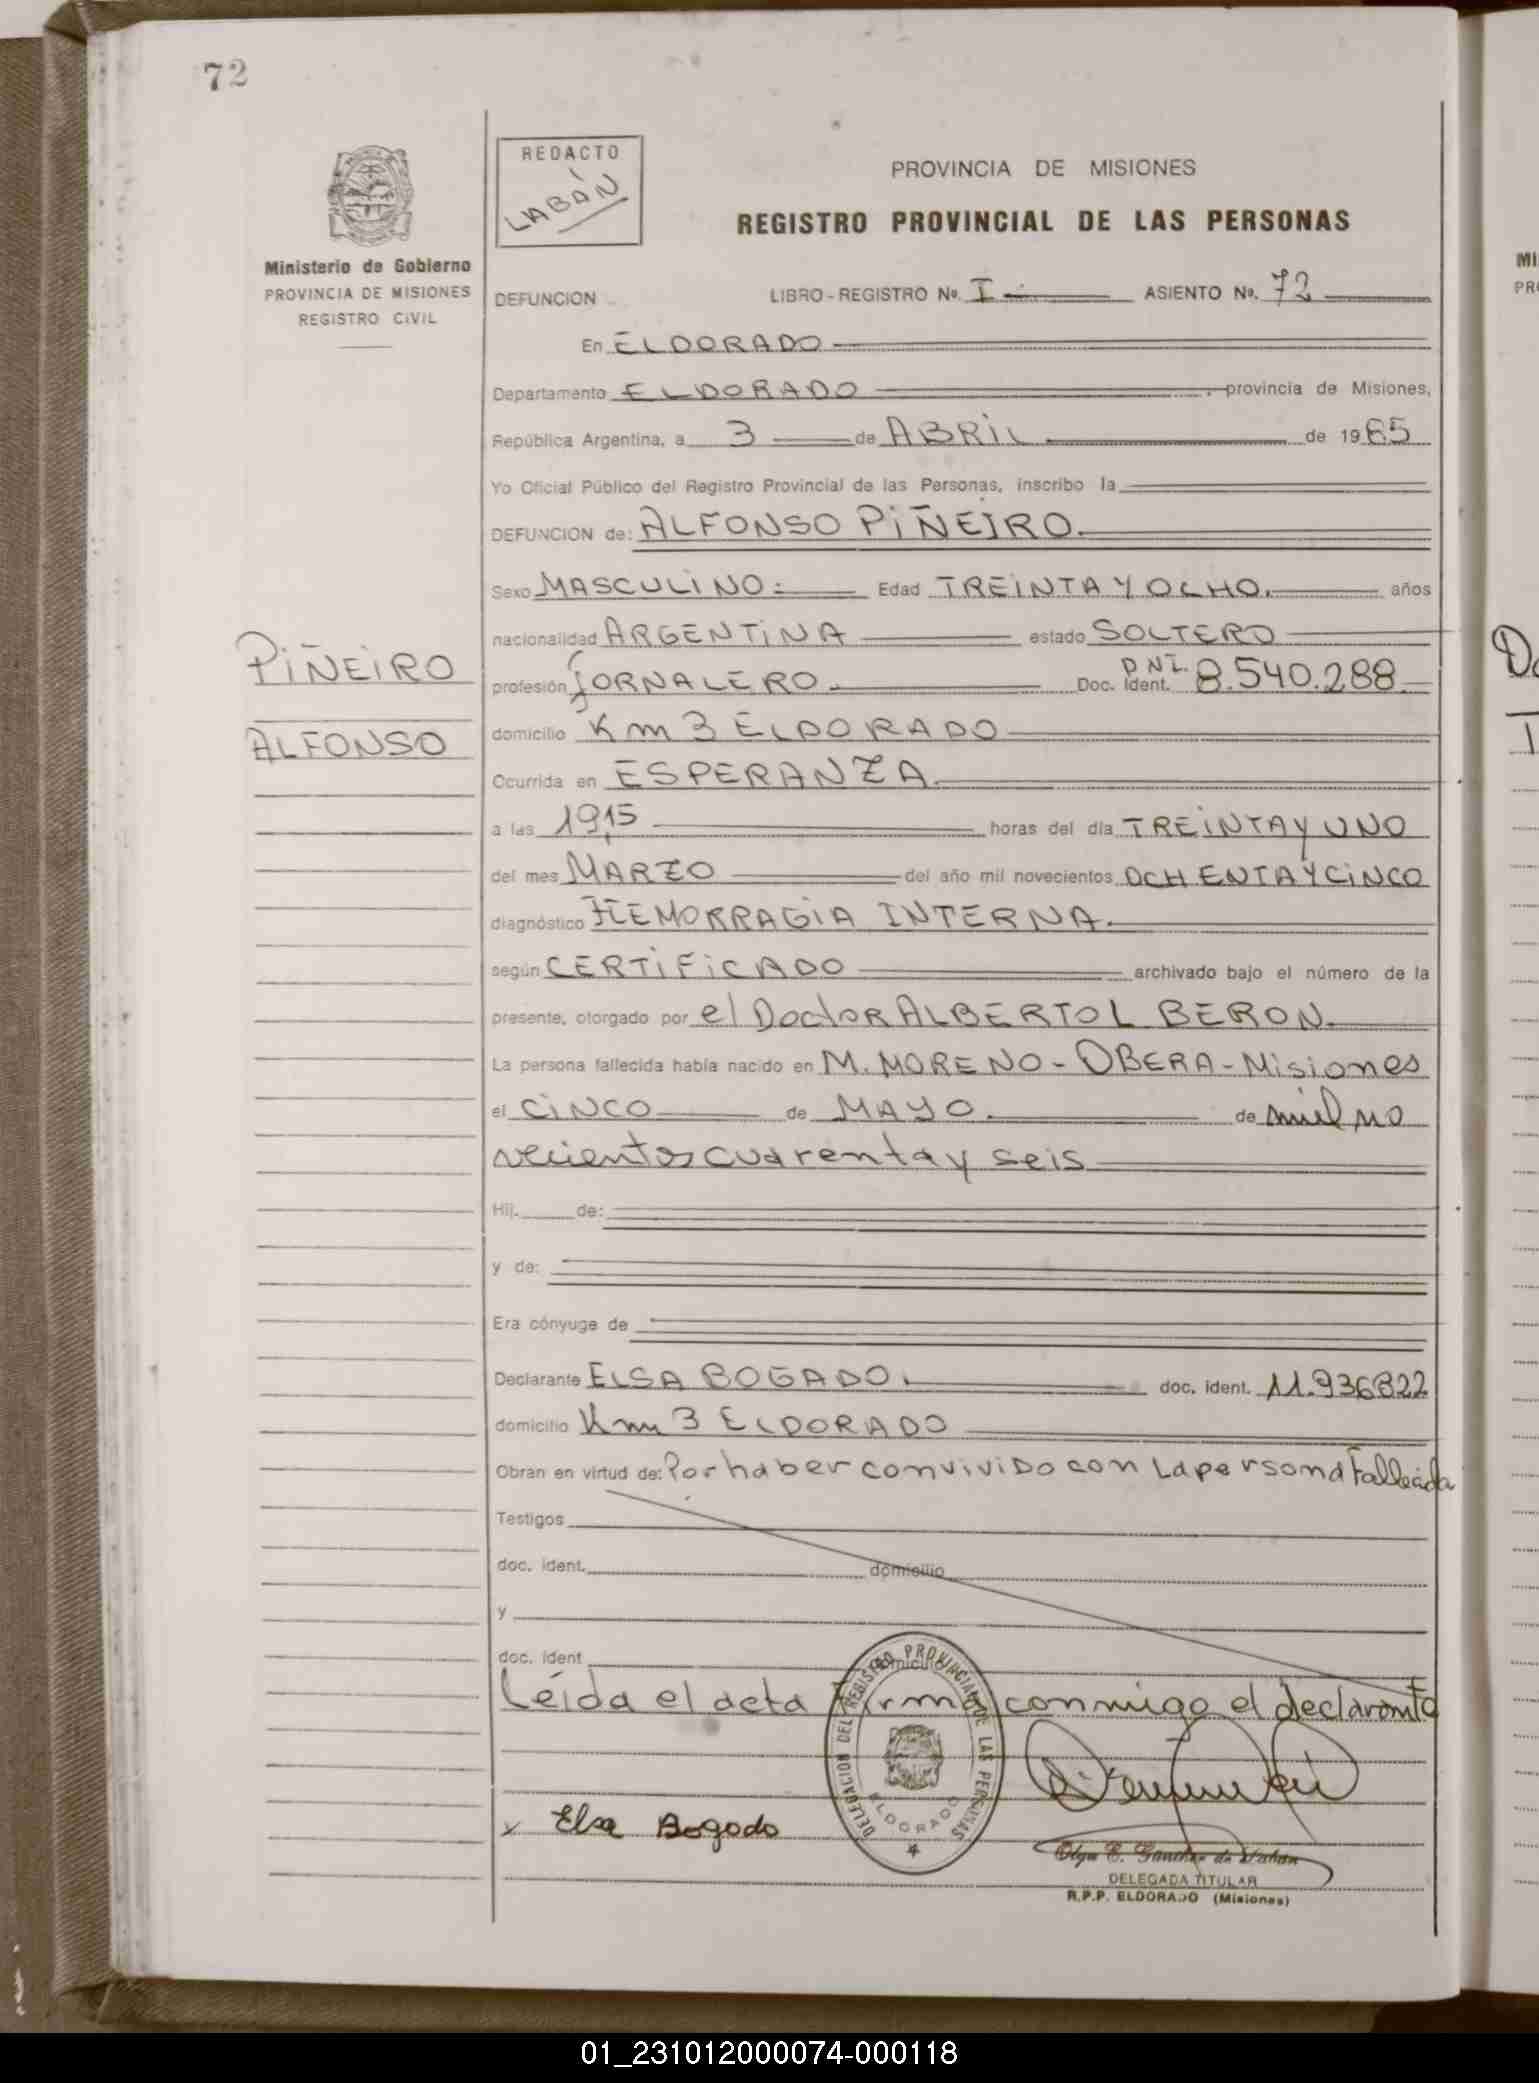 72
REDACTO
LABÁN
PROVINCIA DE MISIONES
REGISTRO PROVINCIAL DE LAS PERSONAS
Ministerio de Gobierno
PROVINCIA DE MISIONES
REGISTRO CIVIL
DEFUNCION LIBRO-REGISTRO No. I ASIENTO No. 72
En ELDORADO
Departamento ELDORADO, provincia de Misiones,
República Argentina, a 3 de ABRIL de 1965
Yo Oficial Público del Registro Provincial de las Personas, inscribo la
DEFUNCION de: ALFONSO PIÑEIRO.
Sexo MASCULINO: Edad TREINTA Y OCHO. años
nacionalidad ARGENTINA estado SOLTERO
PIÑEIRO
ALFONSO
profesión JORNALERO. Doc. Ident. DNI. 8.540.288
domicilio Km 3 ELDORADO
Ocurrida en ESPERANZA.
a las 19,15 horas del día TREINTA Y UNO
del mes MARZO del año mil novecientos OCHENTA Y CINCO
diagnóstico HEMORRAGIA INTERNA.
según CERTIFICADO archivado bajo el número de la
presente, otorgado por el Doctor ALBERTO L BERON.
La persona fallecida había nacido en M. MORENO - OBERA - Misiones
el CINCO de MAYO. de mil no
vecientos cuarenta y seis
Hij. de:
y de:
Era cónyuge de
Declarante ELSA BOGADO. doc. ident. 11.936822
domicilio Km 3 ELDORADO
Obran en virtud de: Por haber convivido con la persona Fallecida
Testigos
doc. ident. domicilio
y
doc. ident domicilio
Leída el acta Firma conmigo el declarante
DELEGACION DEL REGISTRO PROVINCIAL DE LAS PERSONAS
ELDORADO
x Elsa Bogado
DELEGADA TITULAR
R.P.P. ELDORADO (Misiones)
MI
PR
01_231012000074-000118